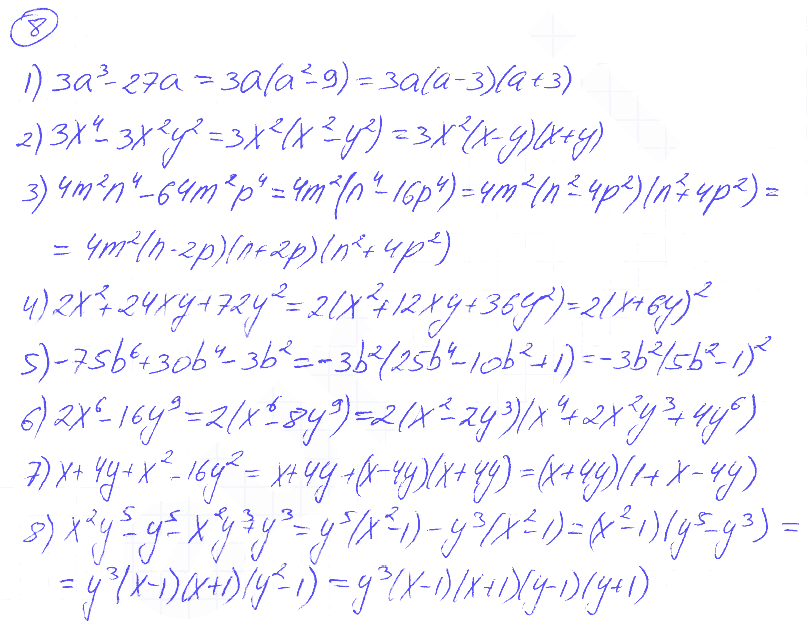 8
1) 3a³ - 27a = 3a(a² - 9) = 3a(a - 3)(a + 3)
2) 3x⁴ - 3x²y² = 3x²(x² - y²) = 3x²(x - y)(x + y)
3) 4m²n⁴ - 64m²p⁴ = 4m²(n⁴ - 16p⁴) = 4m²(n² - 4p²)(n² + 4p²) =
= 4m²(n - 2p)(n + 2p)(n² + 4p²)
4) 2x² + 24xy + 72y² = 2(x² + 12xy + 36y²) = 2(x + 6y)²
5) -75b⁶ + 30b⁴ - 3b² = -3b²(25b⁴ - 10b² + 1) = -3b²(5b² - 1)²
6) 2x⁶ - 16y⁹ = 2(x⁶ - 8y⁹) = 2(x² - 2y³)(x⁴ + 2x²y³ + 4y⁶)
7) x + 4y + x² - 16y² = x + 4y + (x - 4y)(x + 4y) = (x + 4y)(1 + x - 4y)
8) x²y⁵ - y⁵ - x²y³ + y³ = y⁵(x² - 1) - y³(x² - 1) = (x² - 1)(y⁵ - y³) =
= y³(x - 1)(x + 1)(y² - 1) = y³(x - 1)(x + 1)(y - 1)(y + 1)